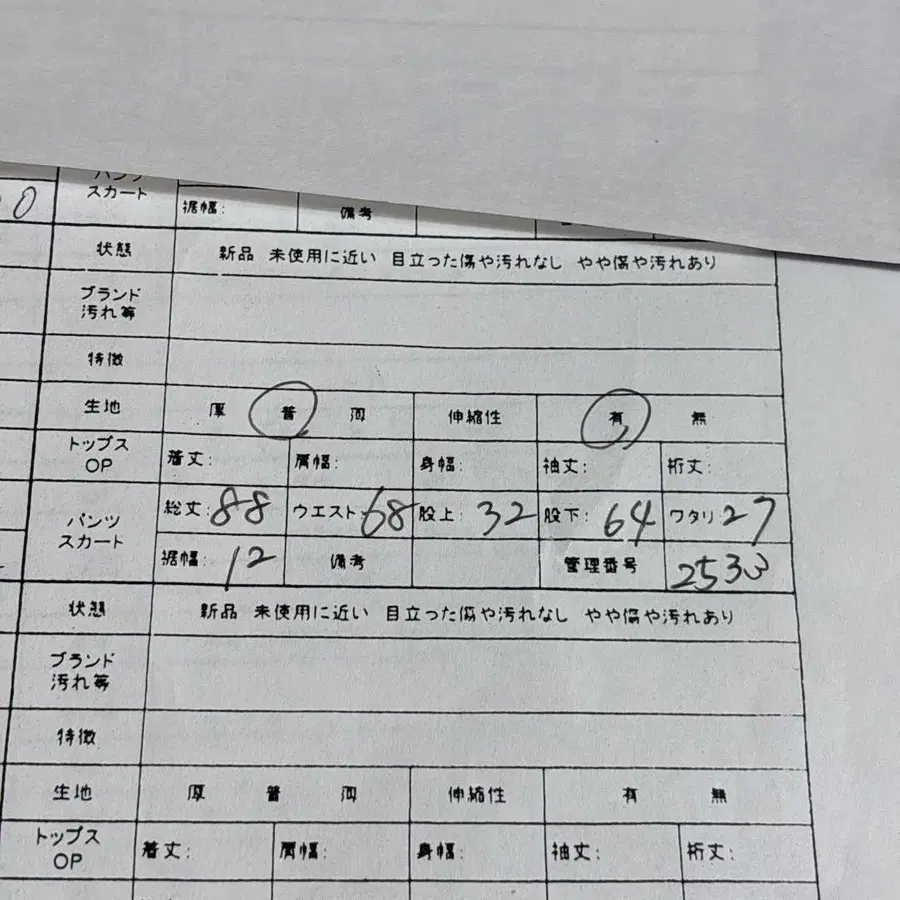 パンツ
スカート
0
裾幅: 備考
状態 新品 未使用に近い 目立った傷や汚れなし やや傷や汚れあり
ブランド
汚れ等
特徴
生地 厚 普 伸縮性 有 無
トップス
OP
着丈: 肩幅: 身幅: 袖丈: 裄丈:
パンツ
スカート
総丈: 88 ウエスト: 68 股上: 32 股下: 64 ワタリ 27
裾幅: 12 備考 管理番号 2533
状態 新品 未使用に近い 目立った傷や汚れなし やや傷や汚れあり
ブランド
汚れ等
特徴
生地 厚 普 伸縮性 有 無
トップス
OP
着丈: 肩幅: 身幅: 袖丈: 裄丈: